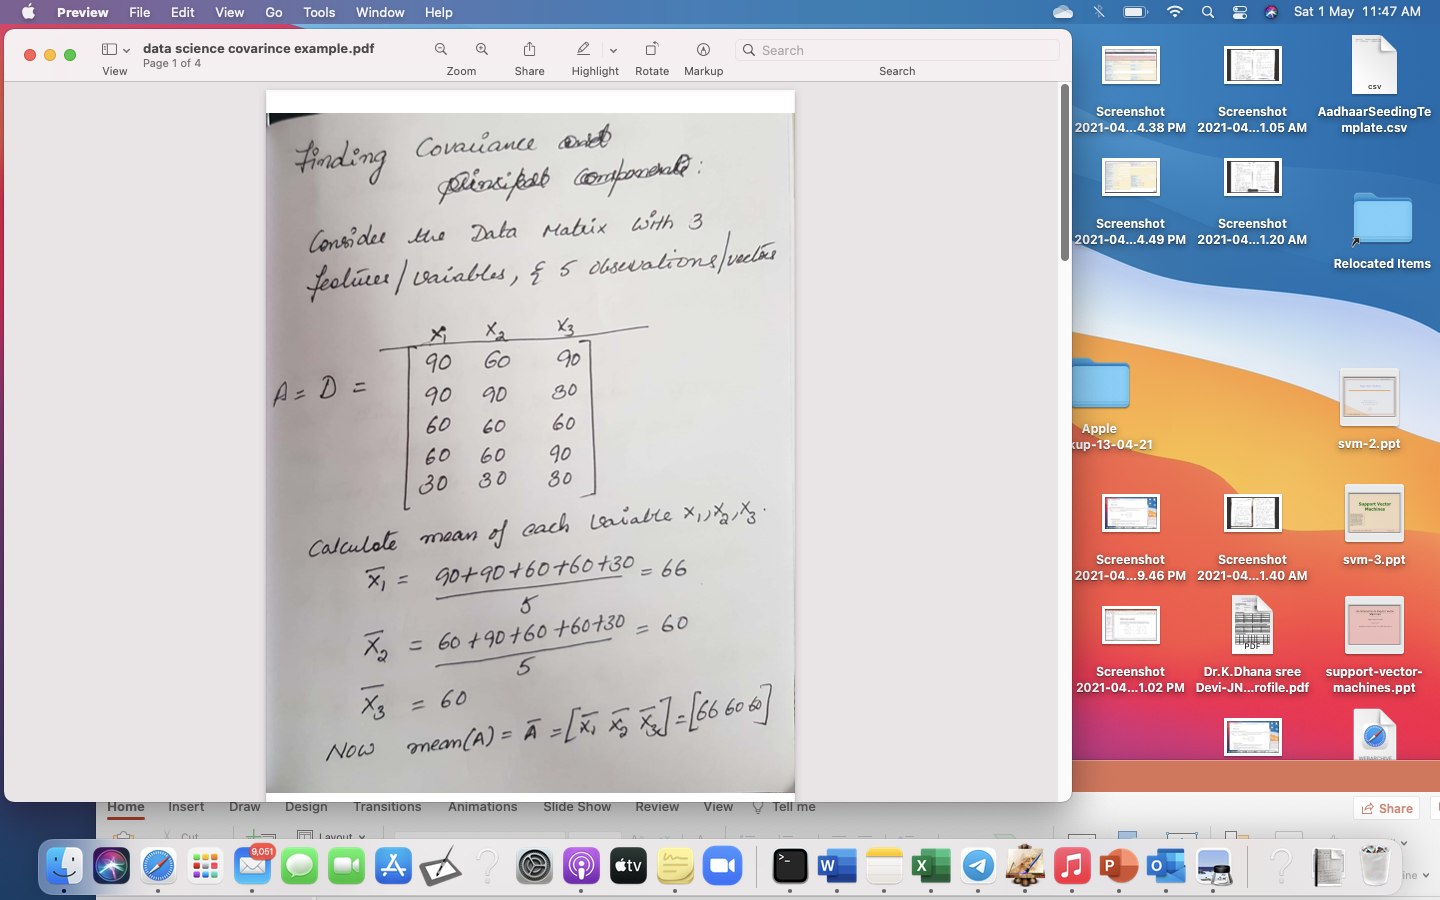 Preview File Edit View Go Tools Window Help Sat 1 May 11:47 AM
data science covarince example.pdf
Page 1 of 4
Search
View Zoom Share Highlight Rotate Markup Search
Finding Covariance and
principal components:
Consider the Data Matrix with 3
features/variables, & 5 observations/vectors
x₁ x₂ x₃
90 60 90
A = D = 90 90 30
60 60 60
60 60 90
30 30 30
Calculate mean of each variable x₁, x₂, x₃.
x̄₁ = 90+90+60+60+30 / 5 = 66
x̄₂ = 60+90+60+60+30 / 5 = 60
x̄₃ = 60
Now mean(A) = Ā = [x̄₁ x̄₂ x̄₃] = [66 60 60]
Screenshot
2021-04...4.38 PM
Screenshot
2021-04...1.05 AM
CSV
AadhaarSeedingTe
mplate.csv
Screenshot
2021-04...4.49 PM
Screenshot
2021-04...1.20 AM
Relocated Items
Apple
kup-13-04-21
svm-2.ppt
Screenshot
2021-04...9.46 PM
Screenshot
2021-04...1.40 AM
Support Vector
Machines
svm-3.ppt
Screenshot
2021-04...1.02 PM
PDF
Dr.K.Dhana sree
Devi-JN...rofile.pdf
support-vector-
machines.ppt
WEBARCHIVE
Home Insert Draw Design Transitions Animations Slide Show Review View Tell me Share
Cut Layout
9,051
tv